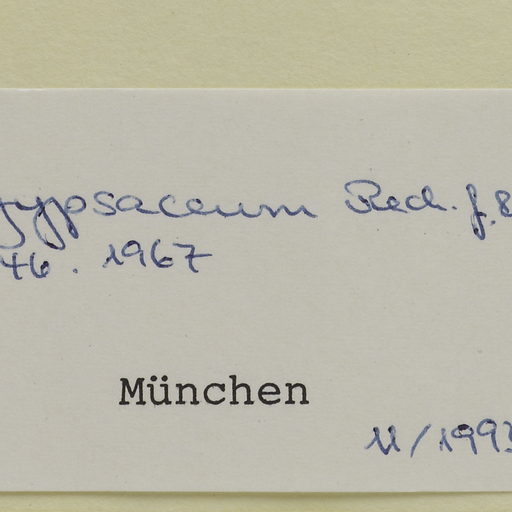 gypsaceum Rech. f. &
46. 1967
München
11/1993